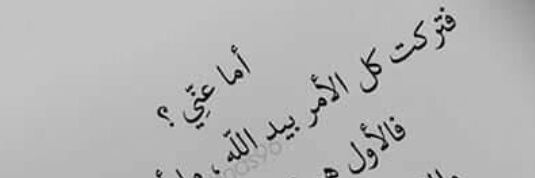 أما عنّي ؟
فتركت كل الأمر بيد اللّه ،
فالأول